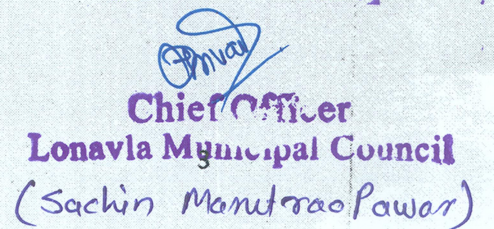 Chief Officer
Lonavla Municipal Council
3
(Sachin Marutrao Pawar)